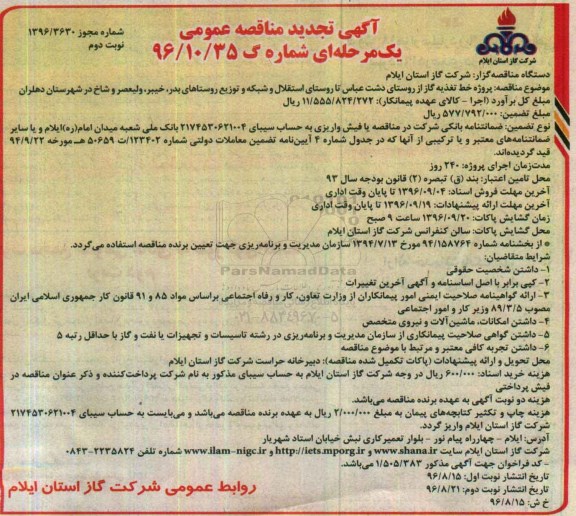 آگهی تجدید مناقصه عمومی
یک‌مرحله‌ای شماره گ ۹۶/۱۰/۳۵
شماره مجوز ۱۳۹۶/۳۶۳۰
نوبت دوم
شرکت گاز استان ایلام
دستگاه مناقصه‌گزار: شرکت گاز استان ایلام
موضوع مناقصه: پروژه خط تغذیه گاز از روستای دشت عباس تا روستای استقلال و شبکه و توزیع روستاهای بدر، خیبر، ولیعصر و شاخ در شهرستان دهلران
مبلغ کل برآورد (اجرا - کالای عهده پیمانکار): ۱۱/۵۵۵/۸۲۴/۲۷۲ ریال
مبلغ تضمین: ۵۷۷/۷۹۲/۰۰۰ ریال
نوع تضمین: ضمانتنامه بانکی شرکت در مناقصه یا فیش واریزی به حساب سیبای ۲۱۷۴۵۳۰۶۲۱۰۰۴ بانک ملی شعبه میدان امام(ره)ایلام و یا سایر
ضمانتنامه‌های معتبر و یا ترکیبی از آنها که در جدول شماره ۴ آیین‌نامه تضمین معاملات دولتی شماره ۱۲۳۴۰۲/ت ۵۰۶۵۹ هـ مورخه ۹۴/۹/۲۲
قید گردیده‌اند.
مدت‌زمان اجرای پروژه: ۲۴۰ روز
محل تامین اعتبار: بند (ق) تبصره (۲) قانون بودجه سال ۹۳
آخرین مهلت فروش اسناد: ۱۳۹۶/۰۹/۰۴ تا پایان وقت اداری
آخرین مهلت ارائه پیشنهادات: ۱۳۹۶/۰۹/۱۹ تا پایان وقت اداری
زمان گشایش پاکات: ۱۳۹۶/۰۹/۲۰ ساعت ۹ صبح
محل گشایش پاکات: سالن کنفرانس شرکت گاز استان ایلام
* از بخشنامه شماره ۹۴/۱۵۸۷۶۴ مورخ ۱۳۹۴/۷/۱۳ سازمان مدیریت و برنامه‌ریزی جهت تعیین برنده مناقصه استفاده می‌گردد.
شرایط متقاضیان:
۱- داشتن شخصیت حقوقی
۲- کپی برابر با اصل اساسنامه و آگهی آخرین تغییرات
۳- ارائه گواهینامه صلاحیت ایمنی امور پیمانکاران از وزارت تعاون، کار و رفاه اجتماعی براساس مواد ۸۵ و ۹۱ قانون کار جمهوری اسلامی ایران
مصوب ۸۹/۳/۵ وزیر کار و امور اجتماعی
۴- داشتن امکانات، ماشین‌آلات و نیروی متخصص
۵- داشتن گواهی صلاحیت پیمانکاری از سازمان مدیریت و برنامه‌ریزی در رشته تاسیسات و تجهیزات یا نفت و گاز با حداقل رتبه ۵
۶- داشتن تجربه کافی معتبر و مرتبط با موضوع مناقصه
محل تحویل و ارائه پیشنهادات (پاکات تکمیل شده مناقصه): دبیرخانه حراست شرکت گاز استان ایلام
هزینه خرید اسناد: ۶۰۰/۰۰۰ ریال در وجه شرکت گاز استان ایلام به حساب سیبای مذکور به نام شرکت پرداخت‌کننده و ذکر عنوان مناقصه در
فیش پرداختی
هزینه دو نوبت آگهی به عهده برنده مناقصه می‌باشد.
هزینه چاپ و تکثیر کتابچه‌های پیمان به مبلغ ۲/۰۰۰/۰۰۰ ریال به عهده برنده مناقصه می‌باشد و می‌بایست به حساب سیبای ۲۱۷۴۵۳۰۶۲۱۰۰۴
شرکت گاز استان ایلام واریز گردد.
آدرس: ایلام - چهارراه پیام نور - بلوار تعمیرکاری نبش خیابان استاد شهریار
شرکت گاز استان ایلام سایت www.shana.ir و http://iets.mporg.ir و www.ilam-nigc.ir شماره تلفن ۲۲۳۵۸۲۴-۰۸۴۳
- کد فراخوان جهت آگهی مذکور ۱/۵۰۵/۳۸۳ می‌باشد.
تاریخ انتشار نوبت اول: ۹۶/۸/۱۵
تاریخ انتشار نوبت دوم: ۹۶/۸/۲۱
خ ش: ۹۶/۸/۱۵
روابط عمومی شرکت گاز استان ایلام
ParsNamadData